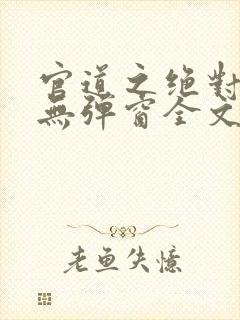 官道之绝對
無彈窗全文
老鱼失憶